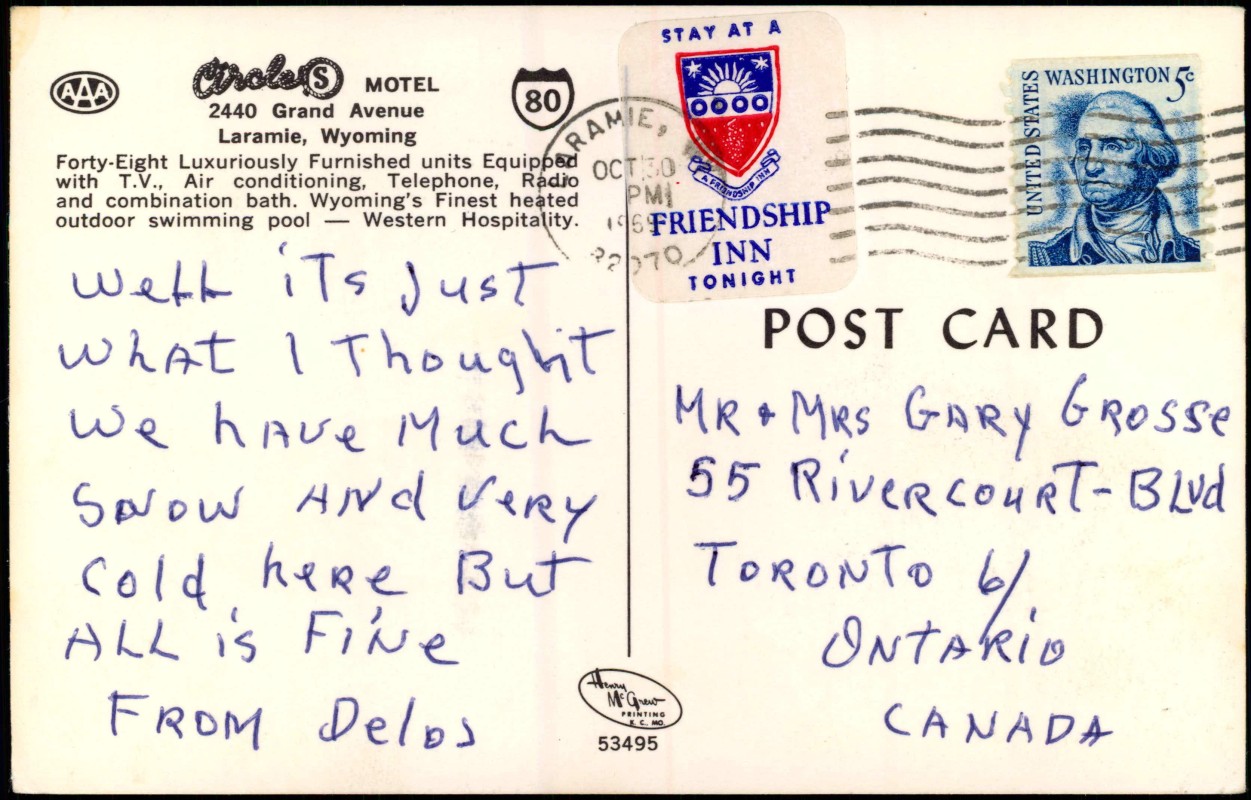 AAA
Circle S MOTEL
2440 Grand Avenue
Laramie, Wyoming
Forty-Eight Luxuriously Furnished units Equipped
with T.V., Air conditioning, Telephone, Radio
and combination bath. Wyoming's Finest heated
outdoor swimming pool — Western Hospitality.
80
STAY AT A
A FRIENDSHIP INN
FRIENDSHIP
INN
TONIGHT
OCT 30
PM
1969
UNITED STATES
WASHINGTON 5c
Well iTs Just
WhAT I Thought
We hAVe Much
Snow ANd Very
Cold here But
ALL is FiNe
FROM Delos
POST CARD
MR & MRS GARY GROSSe
55 RiVeRcouRT - BLVd
TORONTO 6/
ONTARiO
CANADA
Henry
McGrew
PRINTING
K. C. MO.
53495